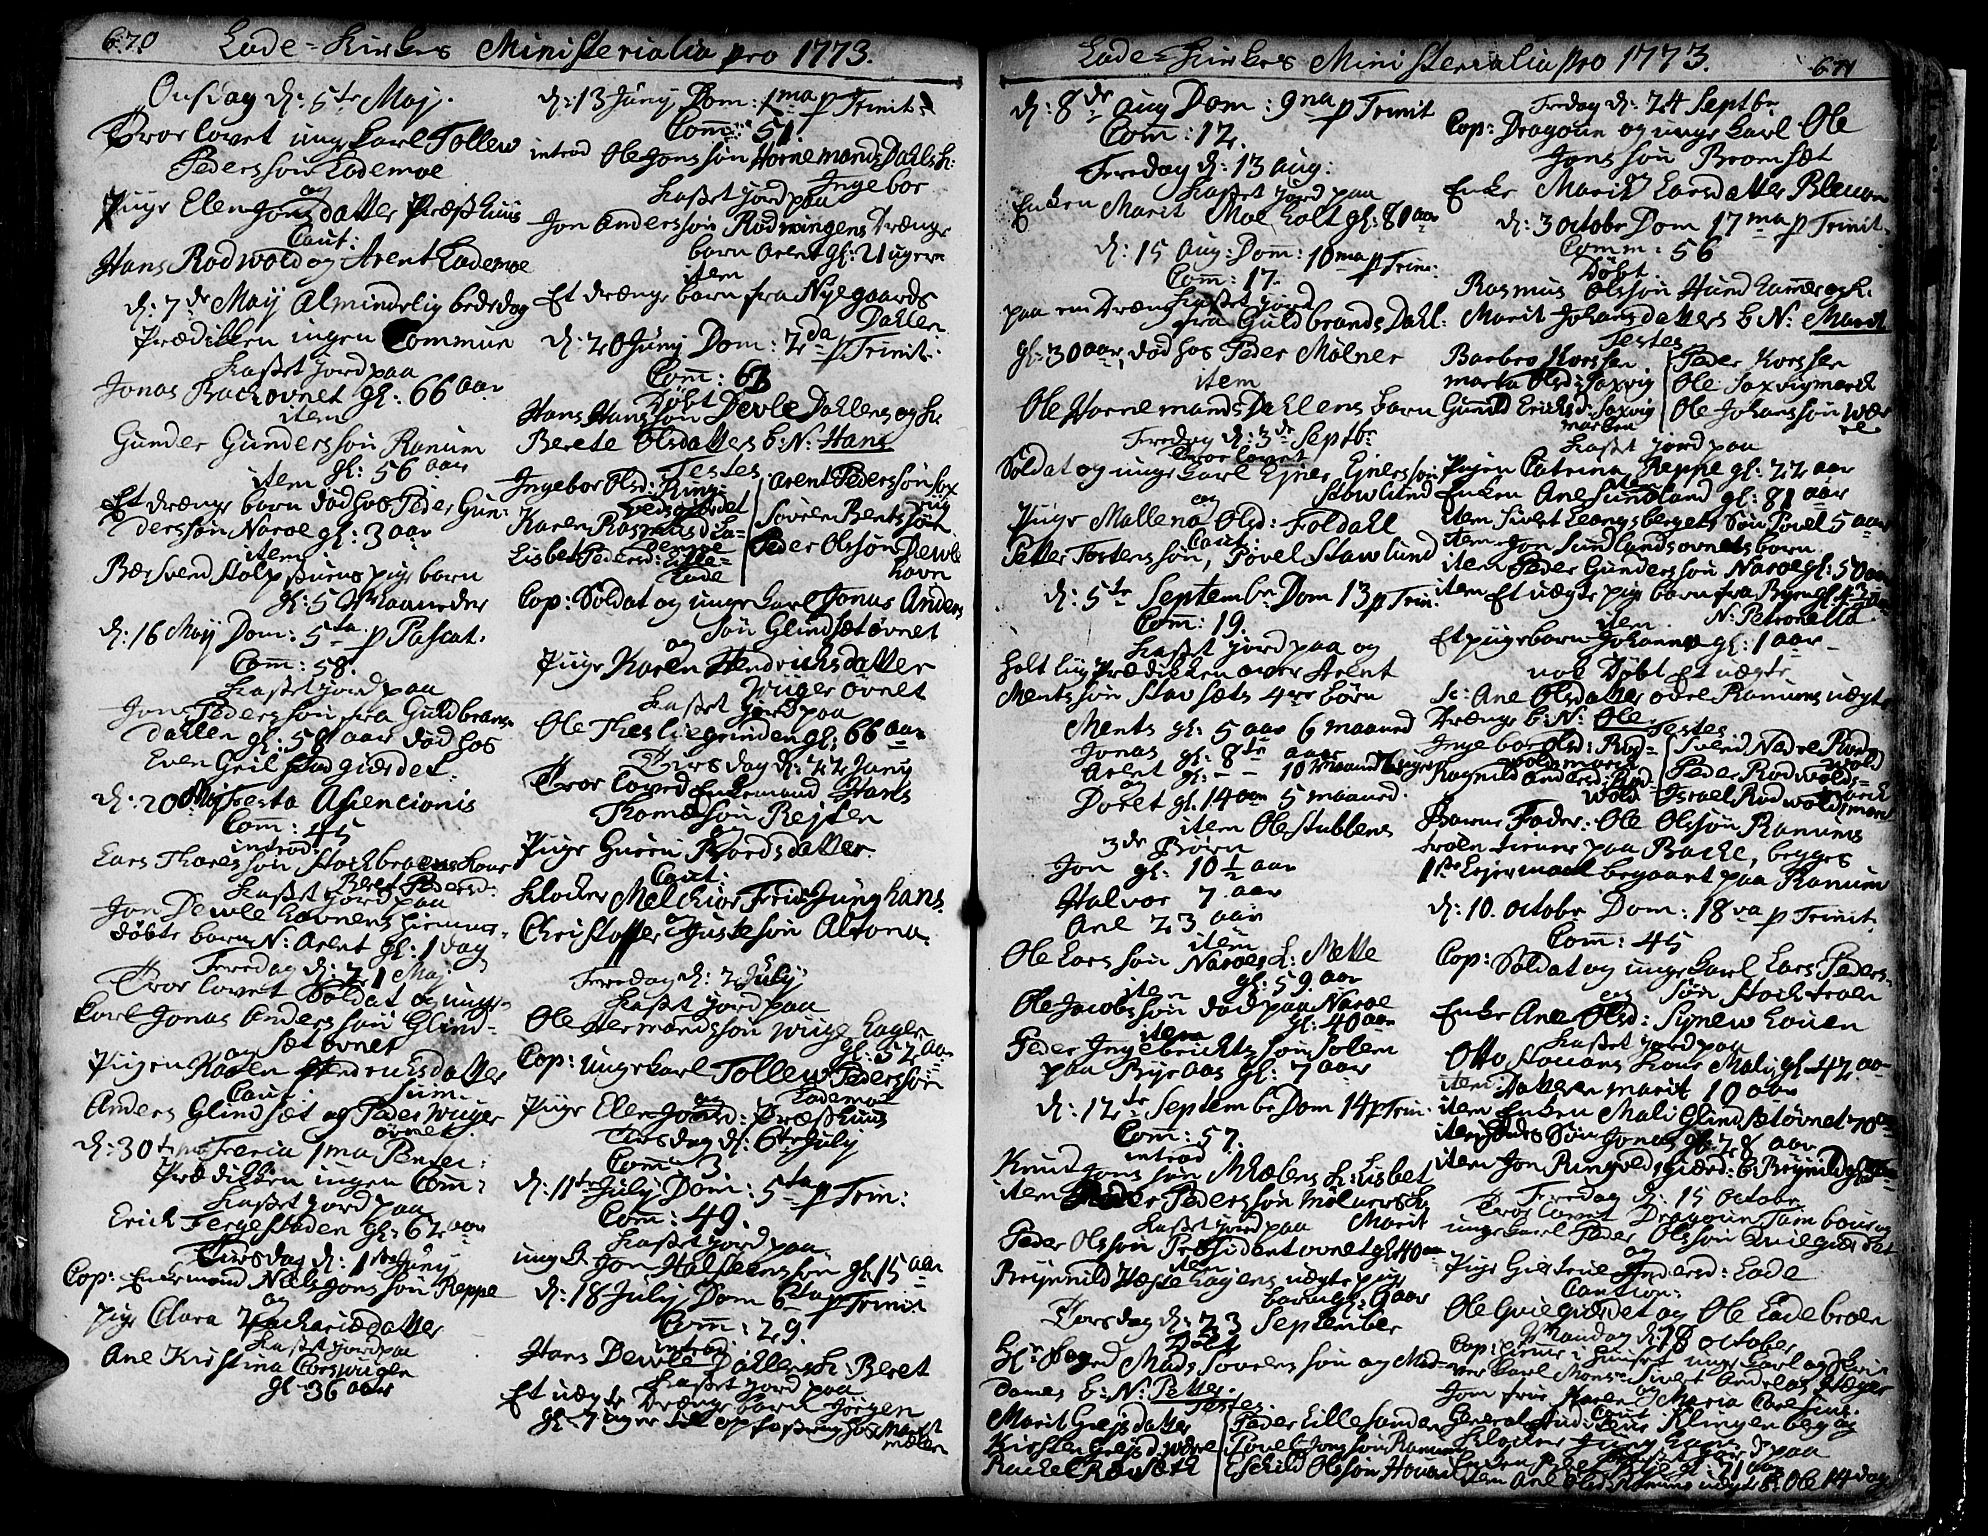 670
Lade-Kirkes Ministerialia pro 1773.
Onsdag d: 5te Maj.
Trorlovet unge Karl Tollew
Pedersøn Lademoe
og
Piige Elen Jonsdatter Præsthuus
Caut:
Hans Rodwold og Arent Lademoe
d: 7de Maij Almindelig bededag
Prædiken ingen Commun
Kastet jord paa
Jonas Backovnet gl: 66 aar
item
Gunder Gunderssøn Ranum
gl: 56 aar
item
Et drænge barn død hos Peder Gun-
derssøn Naroe gl: 3 aar
item
pige barn
gl: 5 Maaneder
d: 16 Maij Dom: 5ta p Pascat.
Com: 58.
Kastet jord paa
Jon Pederssøn fra Guldbrans-
dahlen gl: 58 aar død hos
Even
d: 20 Maj Festa Ascencionis
Com: 45
introd:
Lars Thoressøn
Beret Pedersd:
Kastet jord paa
Jon Devle havnens hiemme-
døbte barn N: Arent gl: 1 dag
Fredag d: 21 Maj
Trorlovet Soldat og unge-
Karl Jonas Anderssøn Glind-
sæt ovnet
og
Piigen Karen Hendrichsdatter
Caut:
Anders Glindsæt og Peder Wiiger
ovnet
d: 30te Feria 1ma Pentec:
Prædiken ingen Com:
Kastet jord paa
Erich Fergestaden gl: 62 aar
Tirsdag d: 1ste Junij
Cop: Enkemand Niels Jonssøn Reppe
og
pige Clara Zachariædatter
Kastet jord paa
Ane Kirstina
gl: 36 aar
d: 13 Junij Dom: 1ma p Trinit:
Com: 51
introd Ole Jonssøn Hornemands Dahls k:
Ingebor
Kastet jord paa
Jon Anderssøn Rødningens Drænge
barn Arent gl: 2 Uger
item
Et drænge barn fra Nyegaards
Dahlen
d: 20 Junij Dom: 2da p Trinit:
Com: 63
Døbt
Hans Hanssøn Devle Dahlens og k:
Berete Olsdatters b: N: Hans
Testes
Ingebor Olsd: Ring-
vedsgierdet
Karen Rasmusd: La-
Lisbet Pedersd: Lille-
Lade
Arent Pederssøn Sax
vig
Søren Bentssøn
Peder Olssøn Devle
havn
Cop: Soldat og unge Karl Jonas Anders
søn Glindsætøvnet
og
Piige Karen Hendrichsdatter
Wiigerøvnet
Kastet jord paa
Ole Thesliegrinden gl: 66 aar
Tirsdag d: 22 Junij
Trorloved Enkemand Hans
Thomæsøn Rejten
og
Piige Guren Tordsdatter
Caut:
Klocker Melchior Frid: Junghans
og
Christoffer Justesøn Altona
Fredag d: 2 Julij
Kastet jord paa
Ole Hermandssøn
gl: 52 aar
Cop: unge Karl Tollew Pederssøn
Lademoe
og
Piige Elen Jonsd: Præsthuus
Tirsdag d: 6te July
Com: 3
d: 11te July Dom: 5ta p Trin:
Com: 49.
Kastet jord paa
ung k: Jon Halstenssøn gl: 15 aar
d: 18 July Dom 6ta p Trinit
Com: 29.
introd:
Hans Devle Dahlens k: Beret
Kastet jord paa
Et uægte Drænge barn Jørgen
gl: 7 uger
Lade-Kirkes Ministerialia pro 1773.
671
d: 8de Aug Dom: 9na p Trinit
Com: 12.
Fredag d: 13 Aug:
Kastet jord paa
Enken Marit Moeholt gl: 80 aar
d: 15 Aug: Dom: 10ma p Trin:
Com: 17.
Kastet jord
paa en Dreng fra Guldbrands Dahl:
gl: 30 aar, død hos Peder Mølner
item
Ole Hornemands Dahlens barn
Fredag d: 3de Septbr
Trorlovet
Soldat og unge Karl Ejner Ejnerssøn
Stowlund
og
Piige Mallena Olsd: Foldahl
Caut:
Petter Tostenssøn, Povel Stawlund
d: 5te Septembr Dom 13 p Trin:
Com: 19.
Kastet jord paa og
holt liig Prædicken over Arent
Mentssøn Stavsæts 4re børn
Ments gl: 5 aar 6 maaned
Jonas gl: 8te aar
Arent gl: — 10 maaned
og
Doret gl: 14 aar 5 maaned
item Ole Stubbens
3de Børn
Jon gl: 10 ½ aar
Halvor 7 aar
Ane 23 aar
item
Ole Larssøn Naroes k: Mette
gl: 59 aar
item
Ole Jacobssøn død paa Naroe
gl: 40 aar
item
Peder Ingebrichtssøn Solem
paa Bye Aas gl: 7 aar
d: 12te Septembr Dom 14 p Trin:
Com: 57.
introd
Knut Jonssøn Mæhlens k: Lisbet
item Peder Pederssøn Mølners k:
Marit
Kastet jord paa
Peder Olssøn Præsident ovnet gl: 40 aar
item
Brynild Veste Hagens uægte pige
barn gl: 9 aar
Torsdag d: 23 September
Døbt
Mads Sørenssøn og Mad-
dames b: N: Petter.
Testes:
Marit Grejsdatter
Kirsten Grejsd:
Rachel Rønsæth
Peder Lillesanden
Povel Jonssøn Ranum
Eschild Olssøn Hovan
Fredag d: 24 Septbr
Cop: Dragoun og unge Karl Ole
Jonssøn Bromsæt
og
Enke Marit Larsdatter Blewan
d: 3 octobr Dom 17ma p Trinit.
Comm: 56
Døbt.
Rasmus Olssøn Hundkamer og k:
Marit Johansdatters b: N: Marit
Testes
Barbro Korssen
Marta Olsd: Saxvig
Gunild Erichsd: Saxvig
marken
Peder Korssen
Ole Saxvigmark
Ole Johanssøn Wær
re
Kastet jord paa
Piigen Catrina Reppe gl: 22 aar
item
Enken Ane Sundland gl: 81 aar
item Sivert Leangsbergets Søn Povel 5 aar
item Jon Sundlandsovnets barn
item Peder Gunderssøn Naroe gl: 50 aar
item Et uægte pige barn fra Byen
N: Petronella
item
Et pigebarn Johanna gl: 1 aar
nok Døbt Et uægte
Se: Ane Olsdatter øvre Ranums uægte
Drænge b: N: Ole.
Testes
Ingebor Olsd: Rod-
woldmarch
Ragnild Andersd: Rod-
wold
Svend Nedre Rod
wold
Peder Rodwolds-
march
Israel Rodwoldsmark
Barne Fader: Ole Olssøn Ranums
tienner paa Backe, begges
1ste Lejermaal begaaet paa Ranum
d: 10. octobr Dom: 18va p Trinit.
Com: 45
Cop: Soldat og unge Karl Lars Peders-
søn Stocktroen
og
Enke Ane Olsd: Synew Louen
Kastet jord paa
Otto Stouans Kone Mali gl: 42 aar
item: Datteren Marit 10 aar
item Enken Mali Glindsætøvnet 70 aar
Søn Jonas gl: 28 aar
item Jon Ringvedsgierd: b: Brynild
Fredag d: 15 Octobr
Trorlovet Dragoun Tambour og
unge Karl Peder Olssøn Qvilgierdet
og
Piige Giertrue Andersd: Lade
Caution:
Ole Qvilgierdet og Ole Ladebroen
Mandag d: 18 October
unge Karl og
Sivert Andreas
Jomfrue Karen Maria
Caut
Klingenberg og
Klocker Junghans
Kastet jord paa
71 aar
item Ane Olsd: Ranums uægte b: Ole 14 dage